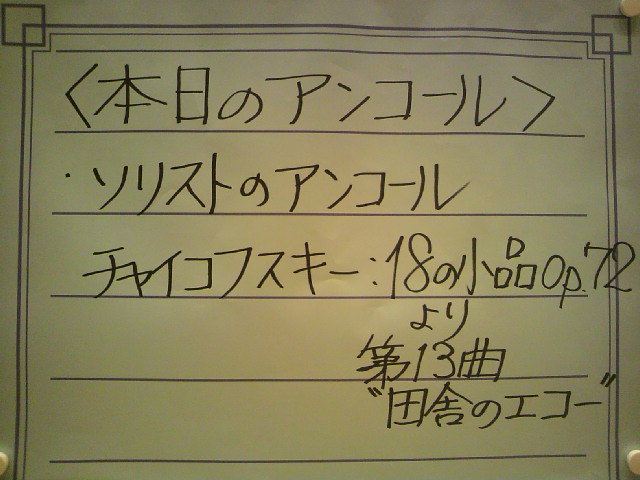 〈本日のアンコール〉
・ソリストのアンコール
チャイコフスキー:18の小品Op.72
より
第13曲
"田舎のエコー"